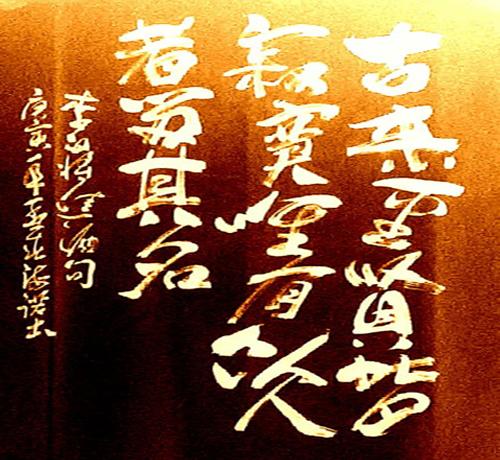 古来圣贤皆
寂寞唯有饮
者留其名
李白将进酒句
庚寅年